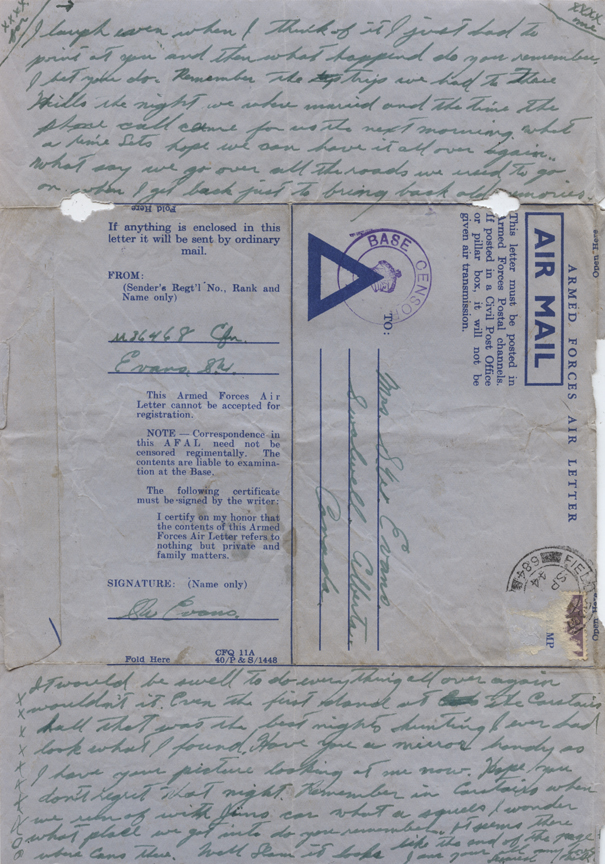 xxxx
for
xxxx
me
I laugh even when I think of it I just had to
point at you and then what happend do you remember,
I bet you do. Remember the trips we had to Three
Hills the night we where married and the time the
phone call came for us the next morning. What
a time Lets hope we can have it all over again..
What say we go over all the roads we used to go
on when I get back just to bring back old memories.
Fold Here
If anything is enclosed in this
letter it will be sent by ordinary
mail.
FROM:
(Sender's Regt'l No., Rank and
Name only)
M36468 Cfn.
Evans. SW
This Armed Forces Air
Letter cannot be accepted for
registration.
NOTE — Correspondence in
this AFAL need not be
censored regimentally. The
contents are liable to examina-
tion at the Base.
The following certificate
must be signed by the writer:
I certify on my honor that
the contents of this Armed
Forces Air Letter refers to
nothing but private and
family matters.
SIGNATURE: (Name only)
SW Evans.
Fold Here
CFQ 11A
40/P & S/1448
ARMED FORCES AIR LETTER
AIR MAIL
This letter must be posted in
Armed Forces Postal channels.
If posted in a Civil Post Office
or pillar box, it will not be
given air transmission.
BASE CENSOR
TO:
Mrs S.W. Evans
Swalwell Alberta
Canada.
Open Here
FIELD
MP
Open Here
It would be swell to do everything all over again
wouldn't it. Even the first stand at the Carstairs
hall that was the best nights hunting I ever had
look what I found. Have you a mirror handy as
I have your picture looking at me now. Hope you
don't regret that night. Remember in Carstairs when
we run of with Jims car what a squeel I wonder
what place we got into do you remember. It seems there
where cans there. Well Hon it looks like the end of the page
x
x
x
x
x
x
x
x
o
o